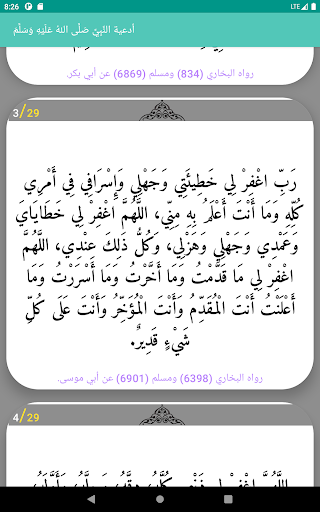 8:26
LTE
أدعية النَّبِيِّ صَلَّى اللهُ عَلَيْهِ وَسَلَّمَ
رواه البخاري (834) ومسلم (6869) عن أبي بكر.
3/29
رَبِّ اغْفِرْ لِي خَطِيئَتِي وَجَهْلِي وَإِسْرَافِي فِي أَمْرِي
كُلِّهِ وَمَا أَنْتَ أَعْلَمُ بِهِ مِنِّي، اللَّهُمَّ اغْفِرْ لِي خَطَايَايَ
وَعَمْدِي وَجَهْلِي وَهَزْلِي، وَكُلُّ ذَلِكَ عِنْدِي، اللَّهُمَّ
اغْفِرْ لِي مَا قَدَّمْتُ وَمَا أَخَّرْتُ وَمَا أَسْرَرْتُ وَمَا
أَعْلَنْتُ أَنْتَ الْمُقَدِّمُ وَأَنْتَ الْمُؤَخِّرُ وَأَنْتَ عَلَى كُلِّ
شَيْءٍ قَدِيرٌ.
رواه البخاري (6398) ومسلم (6901) عن أبي موسى.
4/29